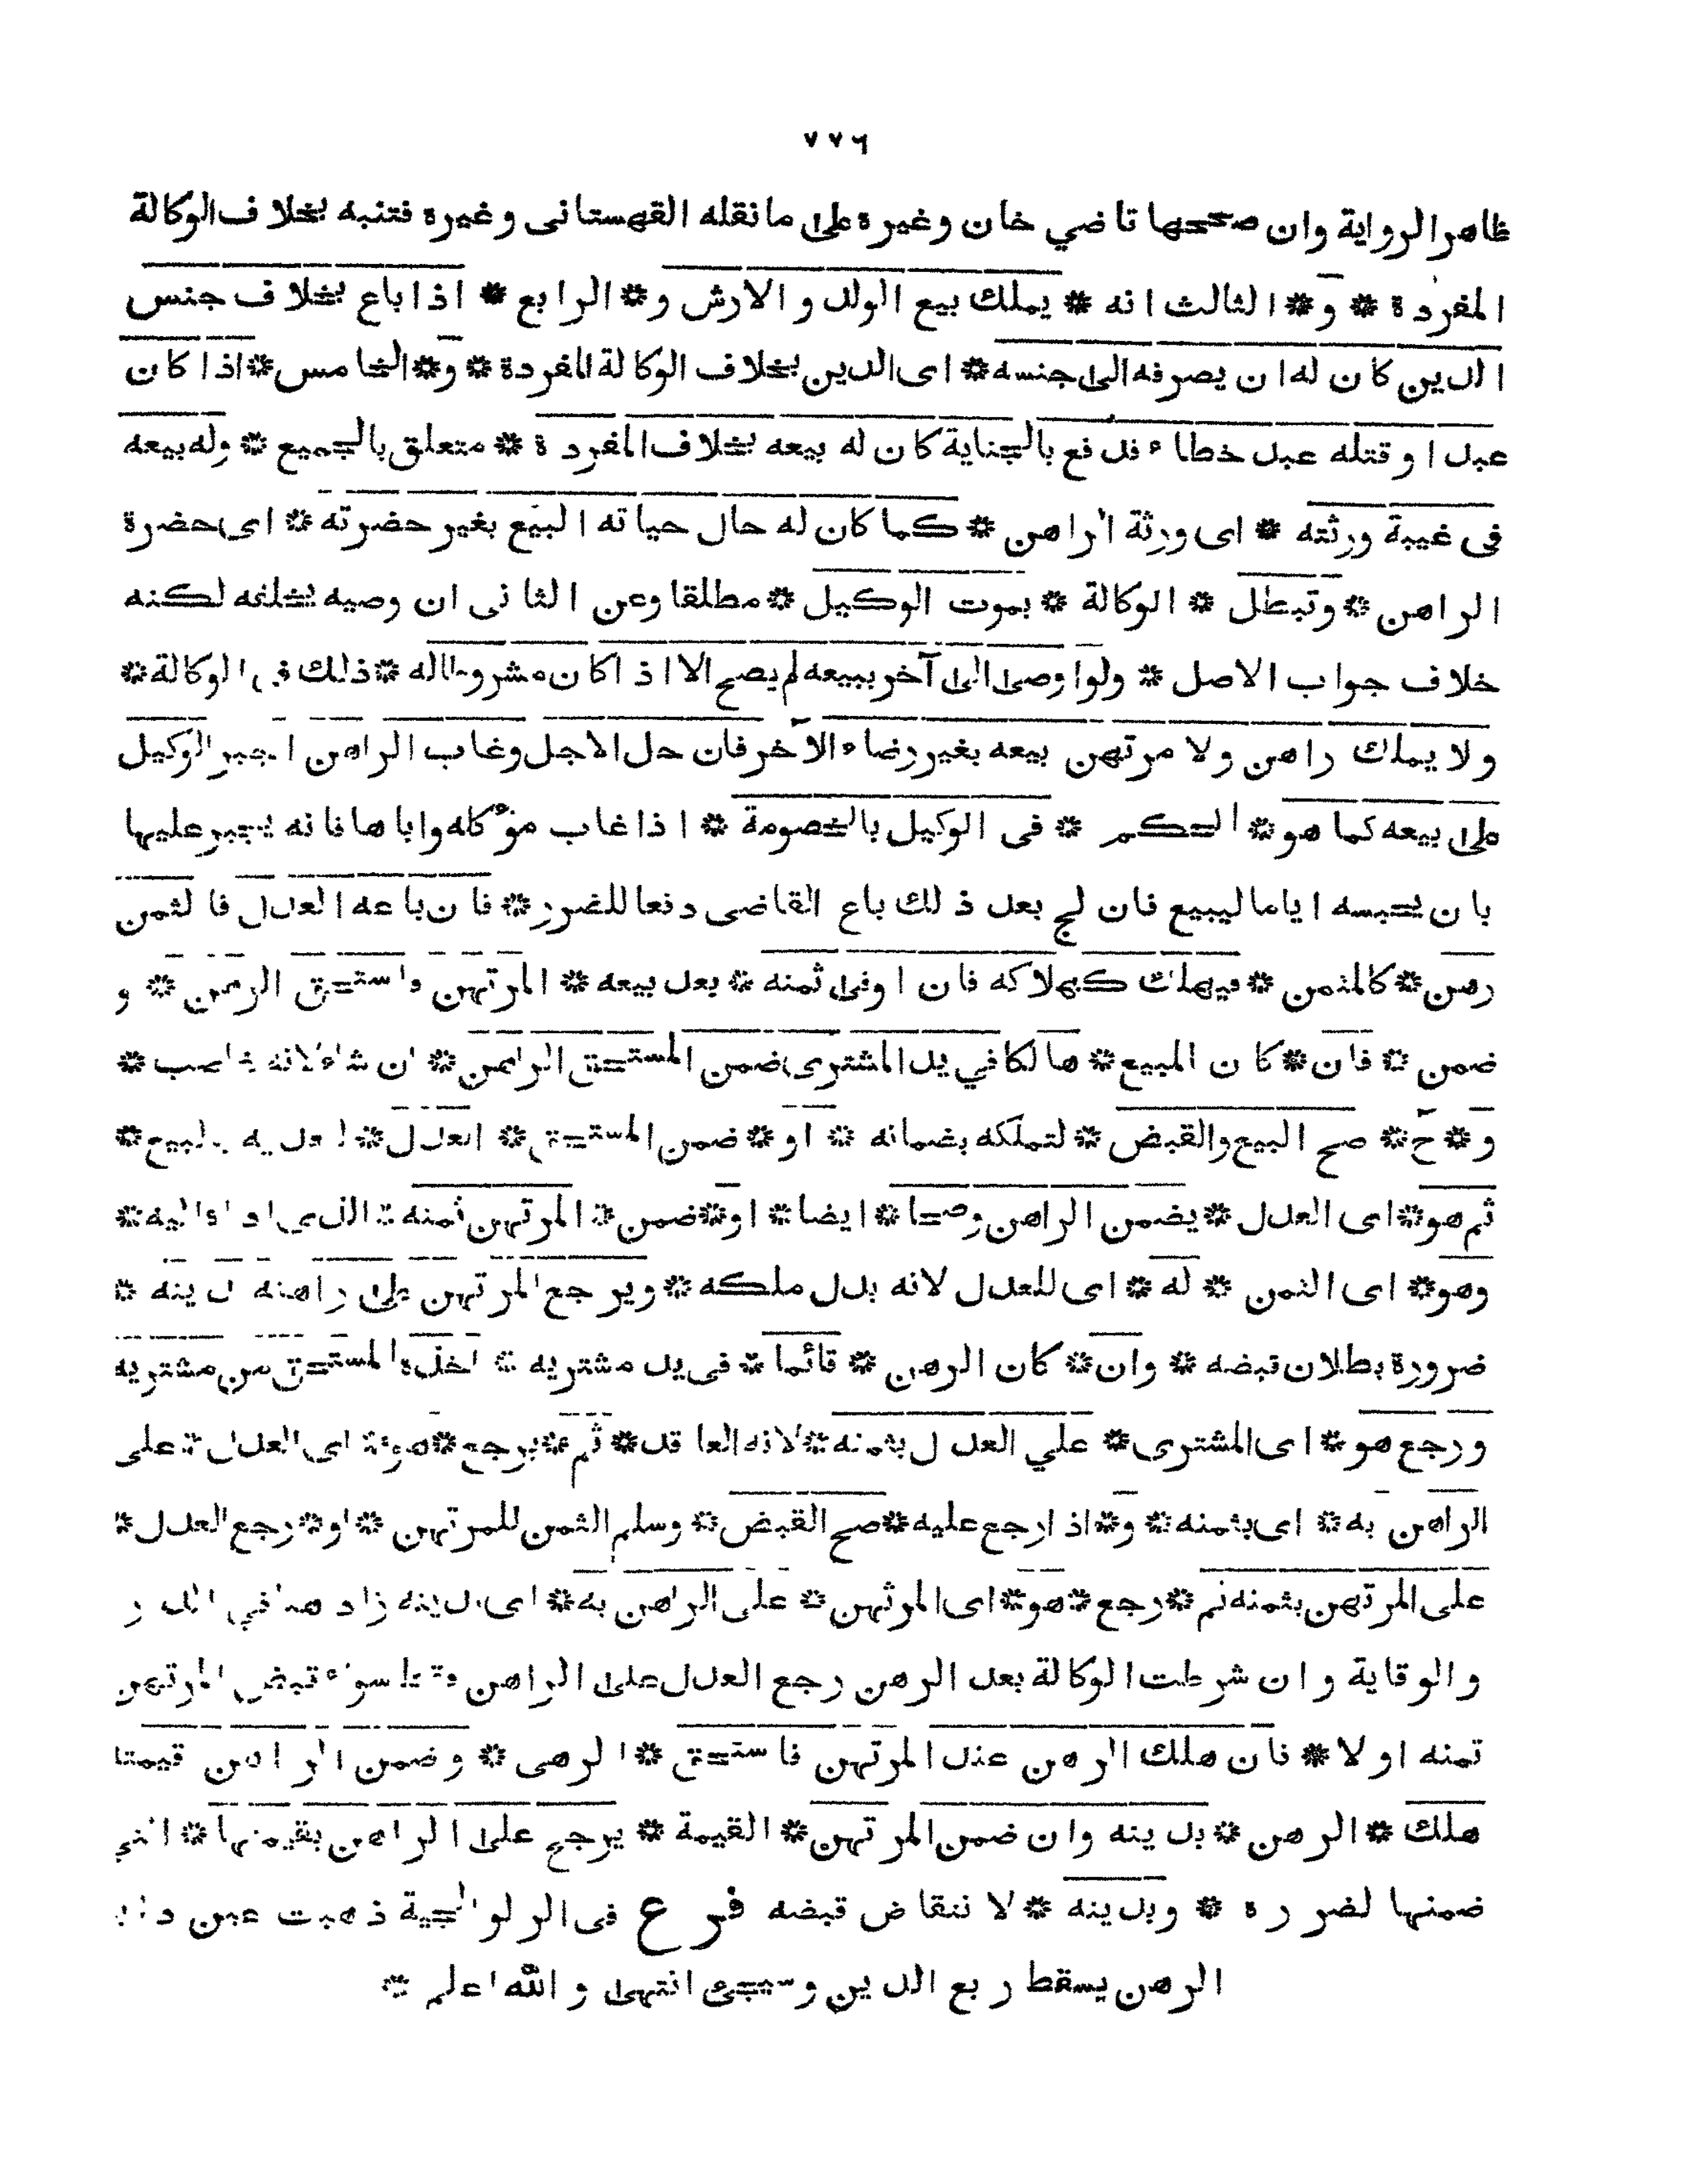 ٧٧٦
ظاهر الرواية وان صححها قاضي خان وغيره على ما نقله القهستانى وغيره فتنبه بخلاف الوكالة
المفردة * و * الثالث انه * يملك بيع الولد والارش و * الرابع * اذا باع بخلاف جنس
الدين كان له ان يصرفه الى جنسه * اى الدين بخلاف الوكالة المفردة * و * الخامس * اذا كان
عبدا وقتله عبد خطاء فدفع بالجناية كان له بيعه بخلاف المفردة * متعلق بالجميع * وله بيعه
فى غيبة ورثته * اى ورثة الراهن * كما كان له حال حياته البيع بغير حضرته * اى حضرة
الراهن * وتبطل * الوكالة * بموت الوكيل * مطلقا وعن الثانى ان وصيه يخلفه لكنه
خلاف جواب الاصل * ولو اوصى الى آخر ببيعه لم يصح الا اذا كان مشروطا له * ذلك فى الوكالة *
ولا يملك راهن ولا مرتهن بيعه بغير رضاء الآخر فان حل الاجل وغاب الراهن اجبر الوكيل
على بيعه كما هو * الحكم * فى الوكيل بالخصومة * اذا غاب مؤكله واباها فانه يجبر عليها
بان يحبسه اياما ليبيع فان لج بعد ذلك باع القاضى دفعا للضرر * فان باعه العدل فالثمن
رهن * كالمثمن * فيهلك كهلاكه فان اوفى ثمنه * بعد بيعه * المرتهن واستحق الرهن * و
ضمن * فان * كان المبيع * هالكا في يد المشترى ضمن المستحق الراهن * ان شاء لانه غاصب *
و * ح * صح البيع والقبض * لتملكه بضمانه * او * ضمن المستحق * العدل * لتعديه بالبيع *
ثم هو * اى العدل * يضمن الراهن وصحا * ايضا * او * ضمن * المرتهن ثمنه * الذى اداه اليه *
وهو * اى الثمن * له * اى للعدل لانه بدل ملكه * ويرجع المرتهن على راهنه بدينه *
ضرورة بطلان قبضه * وان * كان الرهن * قائما * فى يد مشتريه * اخذه المستحق من مشتريه
ورجع هو * اى المشترى * علي العدل بثمنه * لانه العاقد * ثم * يرجع * هو * اى العدل * على
الراهن به * اى بثمنه * و * اذا رجع عليه * صح القبض * وسلم الثمن للمرتهن * او * رجع العدل *
على المرتهن بثمنه ثم * رجع * هو * اى المرتهن * على الراهن به * اى بدينه زاد هنا في الدرر
والوقاية وان شرطت الوكالة بعد الرهن رجع العدل على الراهن فقط سواء قبض المرتهن
ثمنه او لا * فان هلك الرهن عند المرتهن فاستحق * الرهن * وضمن الراهن قيمته
هلك * الرهن * بدينه وان ضمن المرتهن * القيمة * يرجع على الراهن بقيمتها * التى
ضمنها لضرره * وبدينه * لانتقاض قبضه فرع فى الولوالجية ذهبت عين دابة
الرهن يسقط ربع الدين وسيجئ انتهى والله اعلم *